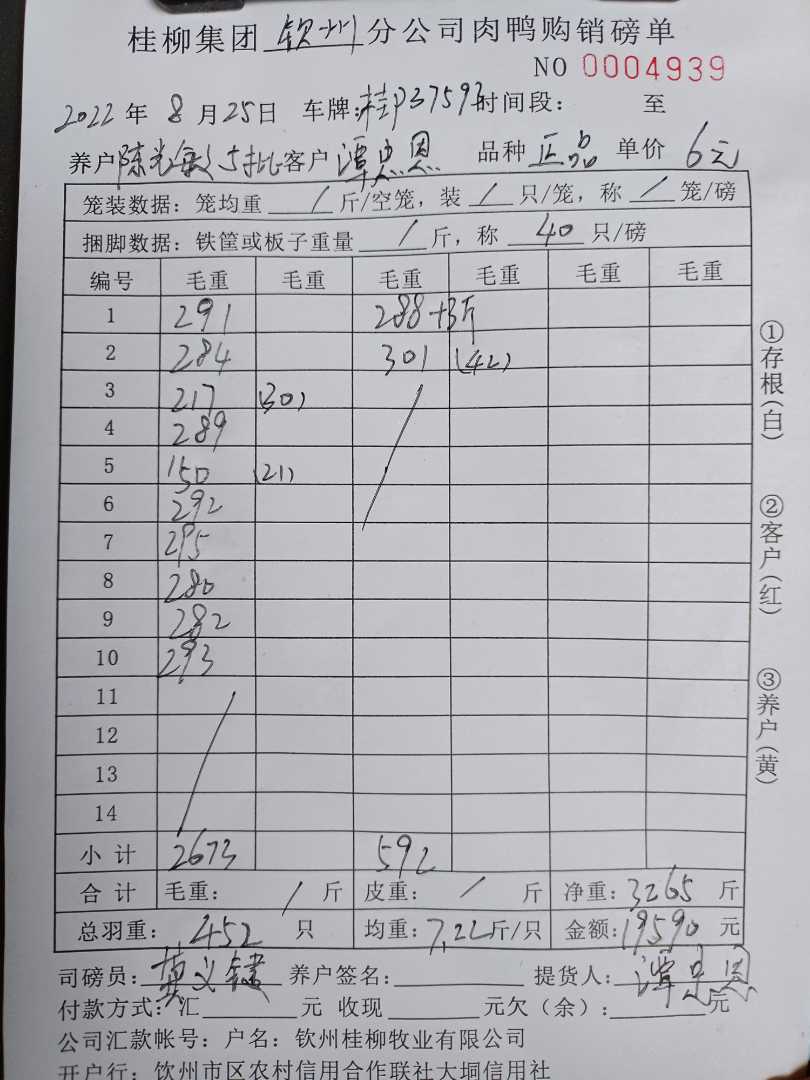 桂柳集团 钦州 分公司肉鸭购销磅单
NO 0004939
2022 年 8 月 25 日 车牌:桂P37593 时间段: 至
养户 陈光敏 5批 客户 谭恩 品种 正品 单价 6元
笼装数据: 笼均重 / 斤/空笼, 装 / 只/笼, 称 / 笼/磅
捆脚数据: 铁筐或板子重量 / 斤, 称 40 只/磅
编号 毛重 毛重 毛重 毛重 毛重 毛重
1 291 288+3斤
2 284 301 (42)
3 217 (30)
4 289
5 150 (21)
6 292
7 295
8 280
9 282
10 293
11
12
13
14
小计 2673 592
合计 毛重: / 斤 皮重: / 斤 净重: 3265 斤
总羽重: 452 只 均重: 7.22 斤/只 金额: 19590 元
司磅员: 养户签名: 提货人: 谭恩
付款方式: 汇 元 收现 元欠(余): 元
公司汇款帐号: 户名: 钦州桂柳牧业有限公司
开户行: 钦州市区农村信用合作联社大垌信用社
①存根(白)
②客户(红)
③养户(黄)